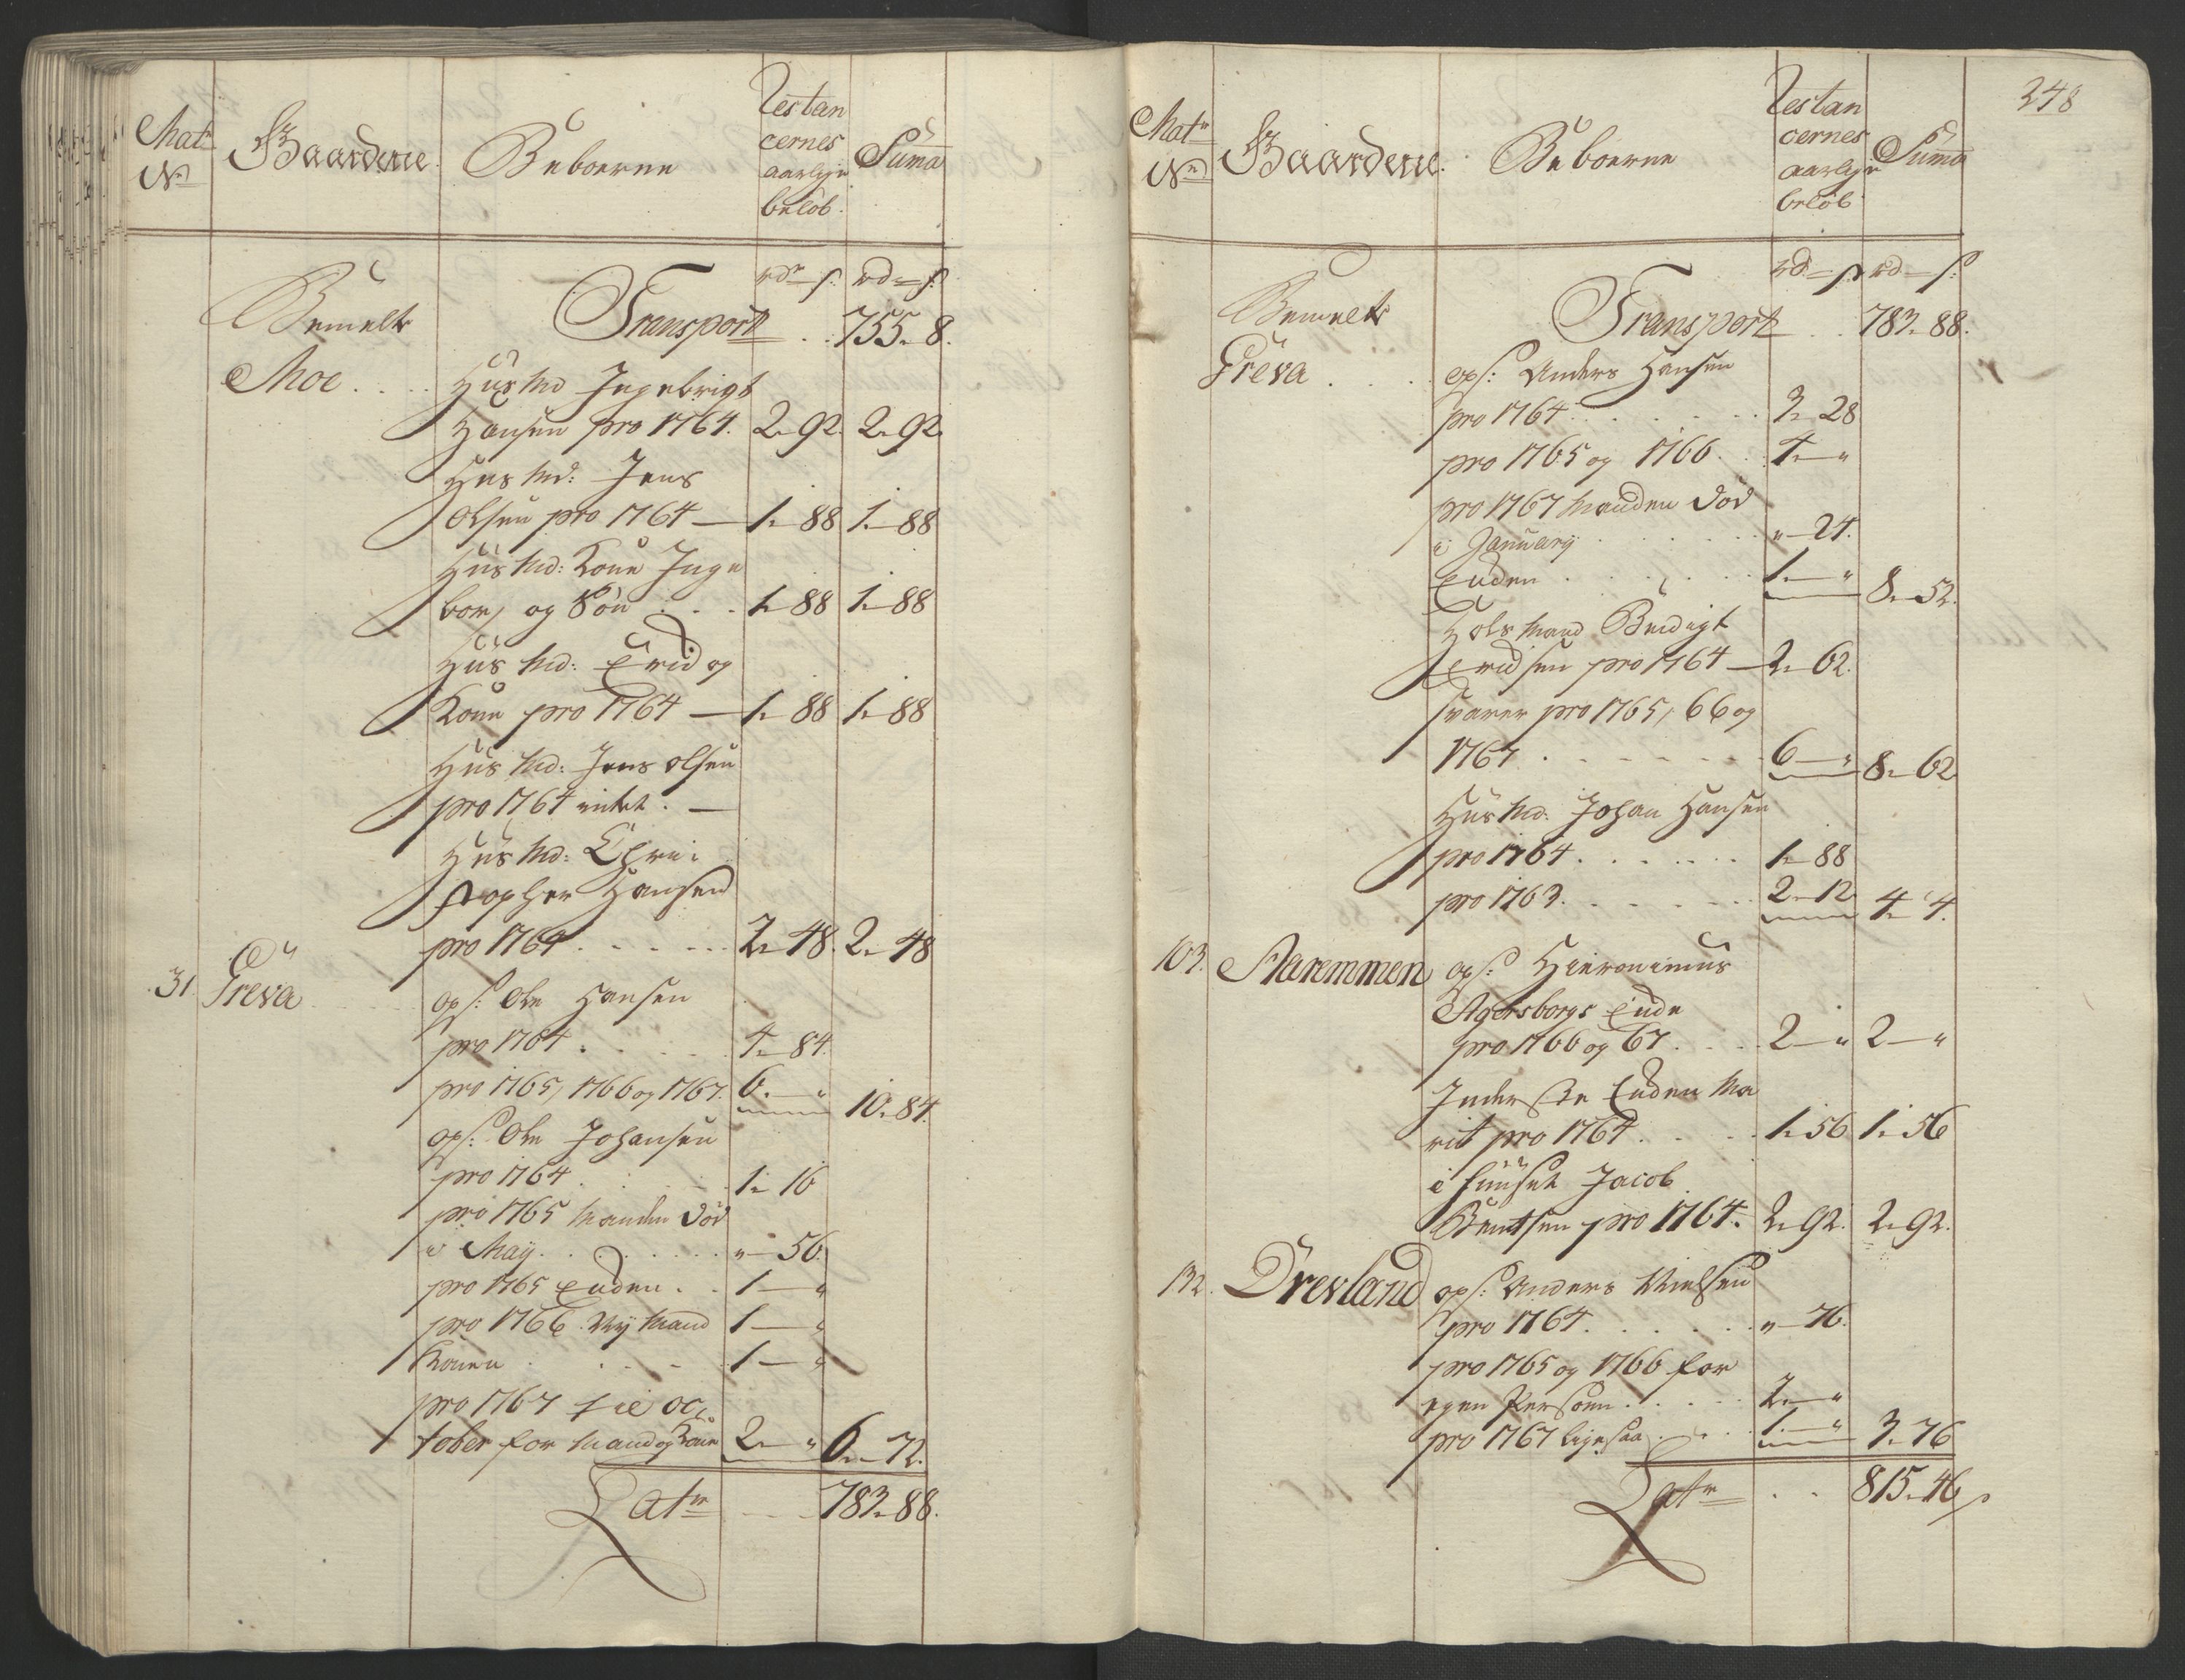 Mat:
No
Gaardene.
Beboerne
Restan
cernes
aarlige
beløb.
Suma
rdr – s. rd – s.
Bemelte Transport . . 755 – 8.
Moe . . . Huusmd Ingebrigt
Hansen pro 1764. 2 – 92. 2 – 92.
Huusmd: Jens
Olsen pro 1764 – 1 – 88 1 – 88
Huusmd: Kone Inge
bor, og Søn . . . 1 – 88 1 – 88
Huusmd: Erid og
Kone pro 1764 – 1 – 88 1 – 88
Huusmd: Jens Olsen
pro 1764 intet . –
Huusmd: Chri:
stopher Hansen
pro 1764 . . . . . 2 – 48. 2 – 48
31. Greva ops: Ole Hansen
pro 1764 . . . . 4 – 84.
pro 1765, 1766 og 1767. 6. – " 10. 84.
ops: Ole Johansen
pro 1764 . . . . 1 – 16
pro 1765 Manden død
i Maÿ . . . . . . " – 56.
pro 1765 Enken . . 1 – "
pro 1766 Nÿ Mand 1 – "
Konen . . . . 1 – "
pro 1767 til oc,
tober for Mand og Kone 2 – " 6. – 72.
Latr – . . 783 – 88.
248
Matr
No
Gaardene.
Beboerne
Restan
cernes
aarlige
beløb
Suma
rd – s. rd – s:
Bemelte Transport . . 783 – 88.
Greva . . . ops: Anders Hansen
pro 1764 . . . . . . 3 – 28
pro 1765 og 1766 . . 4. – "
pro 1767 Manden død
i Januarÿ . . . . . . " – 24.
Enken . . . . . 1. – " 8. – 52.
Huusmand Bendigt
Eridsen pro 1764 – 2 – 62.
svarer pro 1765, 66 og
1767 . . . . . . . 6 – " 8 – 62
Huusmd: Johan Hansen
pro 1764 . . . . . . 1 – 88
pro 1763. . . . . . . 2 – 12 4 – 4.
103. Aaremmen ops: Hieronimus
Agersborgs Enke
pro 1766 og 67 . . . 2 – " 2 – "
Inderste Enken Ma
rit pro 1764 . . . . 1 – 56 1 – 56
i huuset Jacob
Bentsen pro 1764. 2 – 92. 2 – 92.
132. Drevland ops: Anders Nielsen
pro 1764 . . . . . . " – 76.
pro 1765 og 1766 for
egen Person . . . . 2. – "
pro 1767 ligesaa . . . 1. – " 3 – 76
Latr – . . 815 – 46